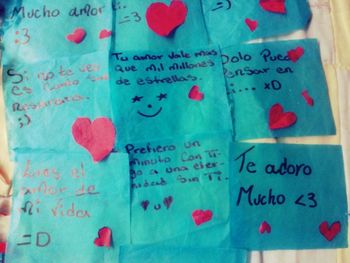 Mucho amor
:3
:3
(:
Si no te veo
es como sin
Respirarte.
;)
Tu amor vale mas
que mil millones
de estrellas.
Solo Puedo
Pensar en
:.... xD
Eres el
amor de
mi vida
=D
Prefiero un
minuto con Ti
go a una eter-
nidad sin Ti.
Te adoro
Mucho <3